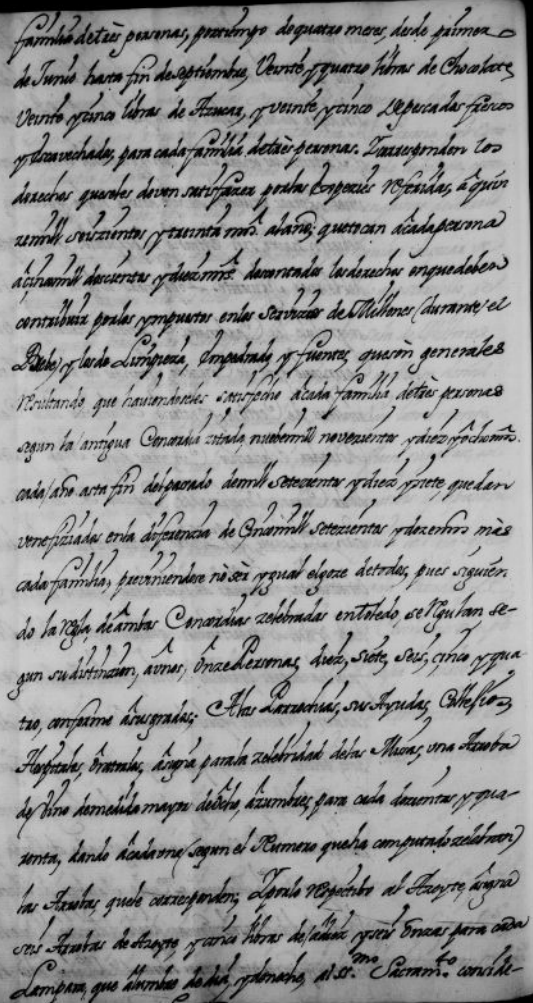 familia de tres personas, por tiempo de quatro meses, desde primero
de Junio hasta fin de septiembre, Veinte y quatro libras de Chocolate,
Veinte y cinco libras de Azucar, y veinte y cinco de pescados frescos
y escavechados, para cada familia de tres personas. Corresponden los
derechos que seles deven satisfazer por las especies referidas, à quin
zemill seiszientos y treinta mrs. al año; que tocan à cada persona
à cincomill doscientos y diez mrs. descontados los derechos en que deben
contribuir por los ympuestos en los Servizios de Millones (durante el
Brebe) y los de Limpieza, Empedrado, y fuentes, que son generales
resultando que haviendoseles satisfecho à cada familia de tres personas
segun la antigua Concordia zitada nuebemill novezientos y diez y ocho mrs.
cada año asta fin del pasado de mill setezientos y diez y siete, quedan
venefiziados en la diferenzia de Cincomill setezientos y doze mrs mas
cada familia, previniendose no ser ygual el goze de todos, pues siguien
do la regla de ambas Concordias zelebradas en toledo, se regulan se-
gun su distinzion, à unos, Onze Personas, diez, siete, seis, cinco y qua
tro, conforme à sus grados; A las Parrochias, sus Ayudas, Collesios,
Hospitales, Oratorios, asigna para la zelebridad de las Misas, una Arroba
de Vino de medida mayor de Ocho azumbres, para cada dozientas y qua-
renta, dando à cada one (segun el Numero que ha computado zelebran)
las Arrobas que le corresponden; Y por lo respectibo al Azeyte, asigna
seis Arrobas de Azeyte, y cinco libras de à diez y seis Onzas para cada
Lampara, que alumbre de dia, y de noche, al SSmo. Sacramto. conside-